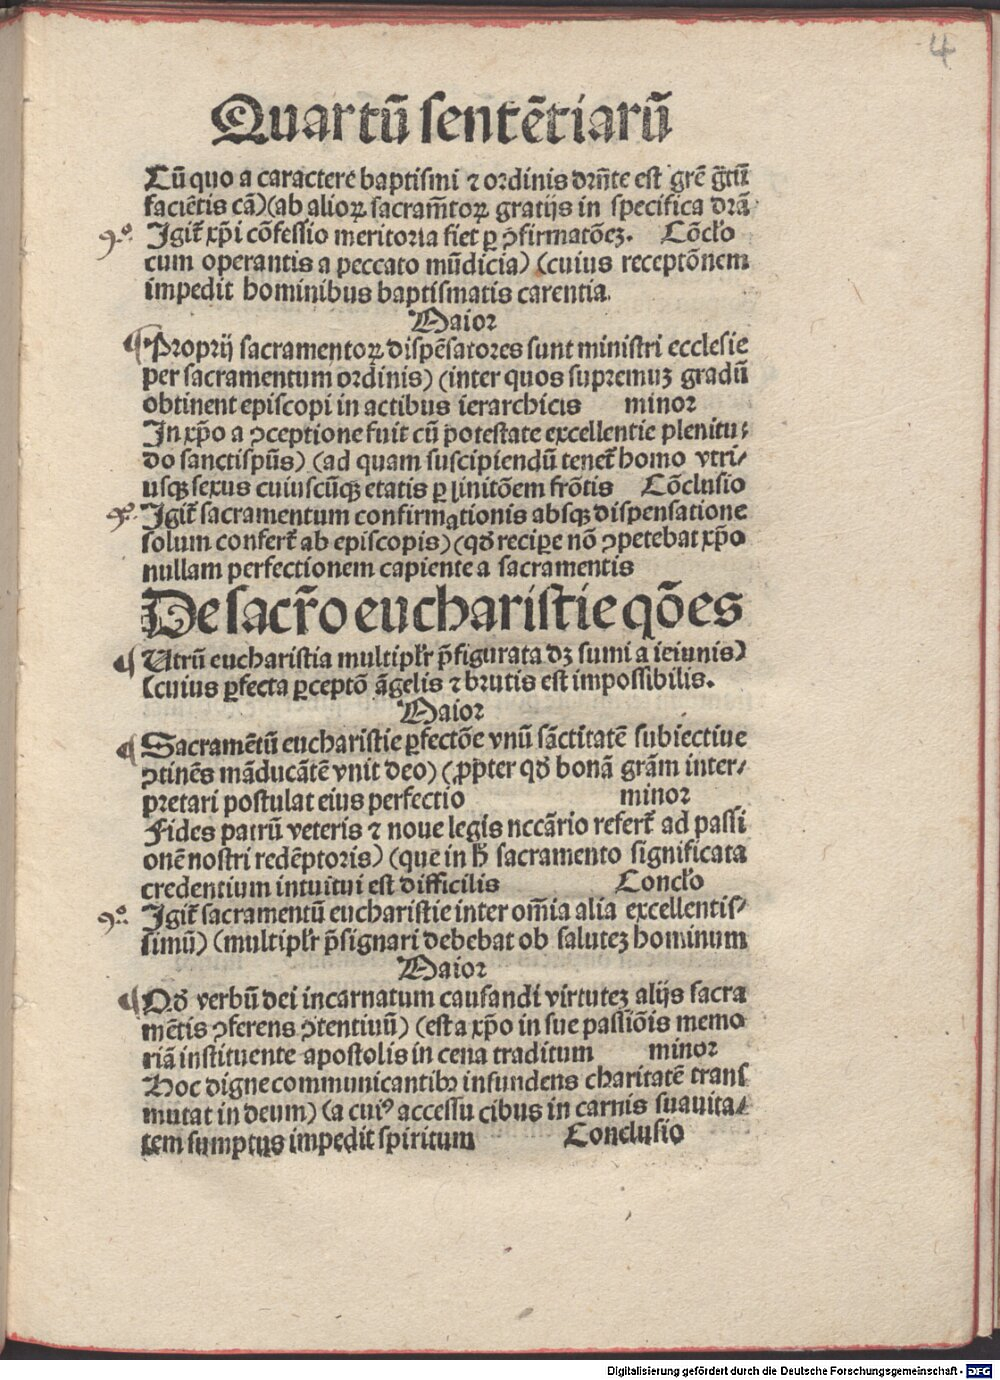 4
Quartū sentētiarū
Cū quo a caractere baptismi ⁊ ordinis drn̄te est grē gr̄tū
faciētis cā) (ab alioꝝ sacram̄toꝝ gratijs in specifica drā
9º Igit᷑ xp̄i cōfessio meritoria fiet ꝑ ꝯfirmatōeꝫ. Cōcl'o
cum operantis a peccato mūdicia) (cuius receptōnem
impedit hominibus baptismatis carentia.
Maior
¶ Proprij sacramentoꝝ dispēsatores sunt ministri ecclesie
per sacramentum ordinis) (inter quos supremuꝫ gradū
obtinent episcopi in actibus ierarchicis minor
In xp̄o a ꝯceptione fuit cū potestate excellentie plenitu⸗
do sanctispūs) (ad quam suscipiendū tenet᷑ homo vtri⸗
usqꝫ sexus cuiuscūqꝫ etatis ꝑ linitōem frōtis Cōclusio
9º Igit᷑ sacramentum confirmationis absqꝫ dispensatione
solum confert᷑ ab episcopis) (qd̄ reciꝑe nō ꝯpetebat xp̄o
nullam perfectionem capiente a sacramentis
De sacr̄o eucharistie qōes
¶ Utrū eucharistia multipl'r p̄figurata dꝫ sumi a ieiunis)
(cuius ꝑfecta ꝑceptō āgelis ⁊ brutis est impossibilis.
Maior
¶ Sacramētū eucharistie ꝑfectōe vnū sāctitatē subiectiue
ꝯtinēs māducātē vnit deo) (ꝓpter qd̄ bonā grām inter⸗
pretari postulat eius perfectio minor
Fides patrū veteris ⁊ noue legis nccārio refert᷑ ad passi
onē nostri redēptoris) (que in h̄ sacramento significata
credentium intuitui est difficilis Concl'o
9º Igit᷑ sacramentū eucharistie inter om̄ia alia excellentis⸗
simū) (multipl'r p̄signari debebat ob saluteꝫ hominum
Maior
¶ Qd̄ verbū dei incarnatum causandi virtuteꝫ alijs sacra
mētis ꝯferens ꝯtentiuū) (est a xp̄o in sue passiōis memo
riā instituente apostolis in cena traditum minor
Hoc digne communicantibꝫ infundens charitatē trans
mutat in deum) (a cuiꝰ accessu cibus in carnis suauita⸗
tem sumptus impedit spiritum Conclusio
Digitalisierung gefördert durch die Deutsche Forschungsgemeinschaft - DFG